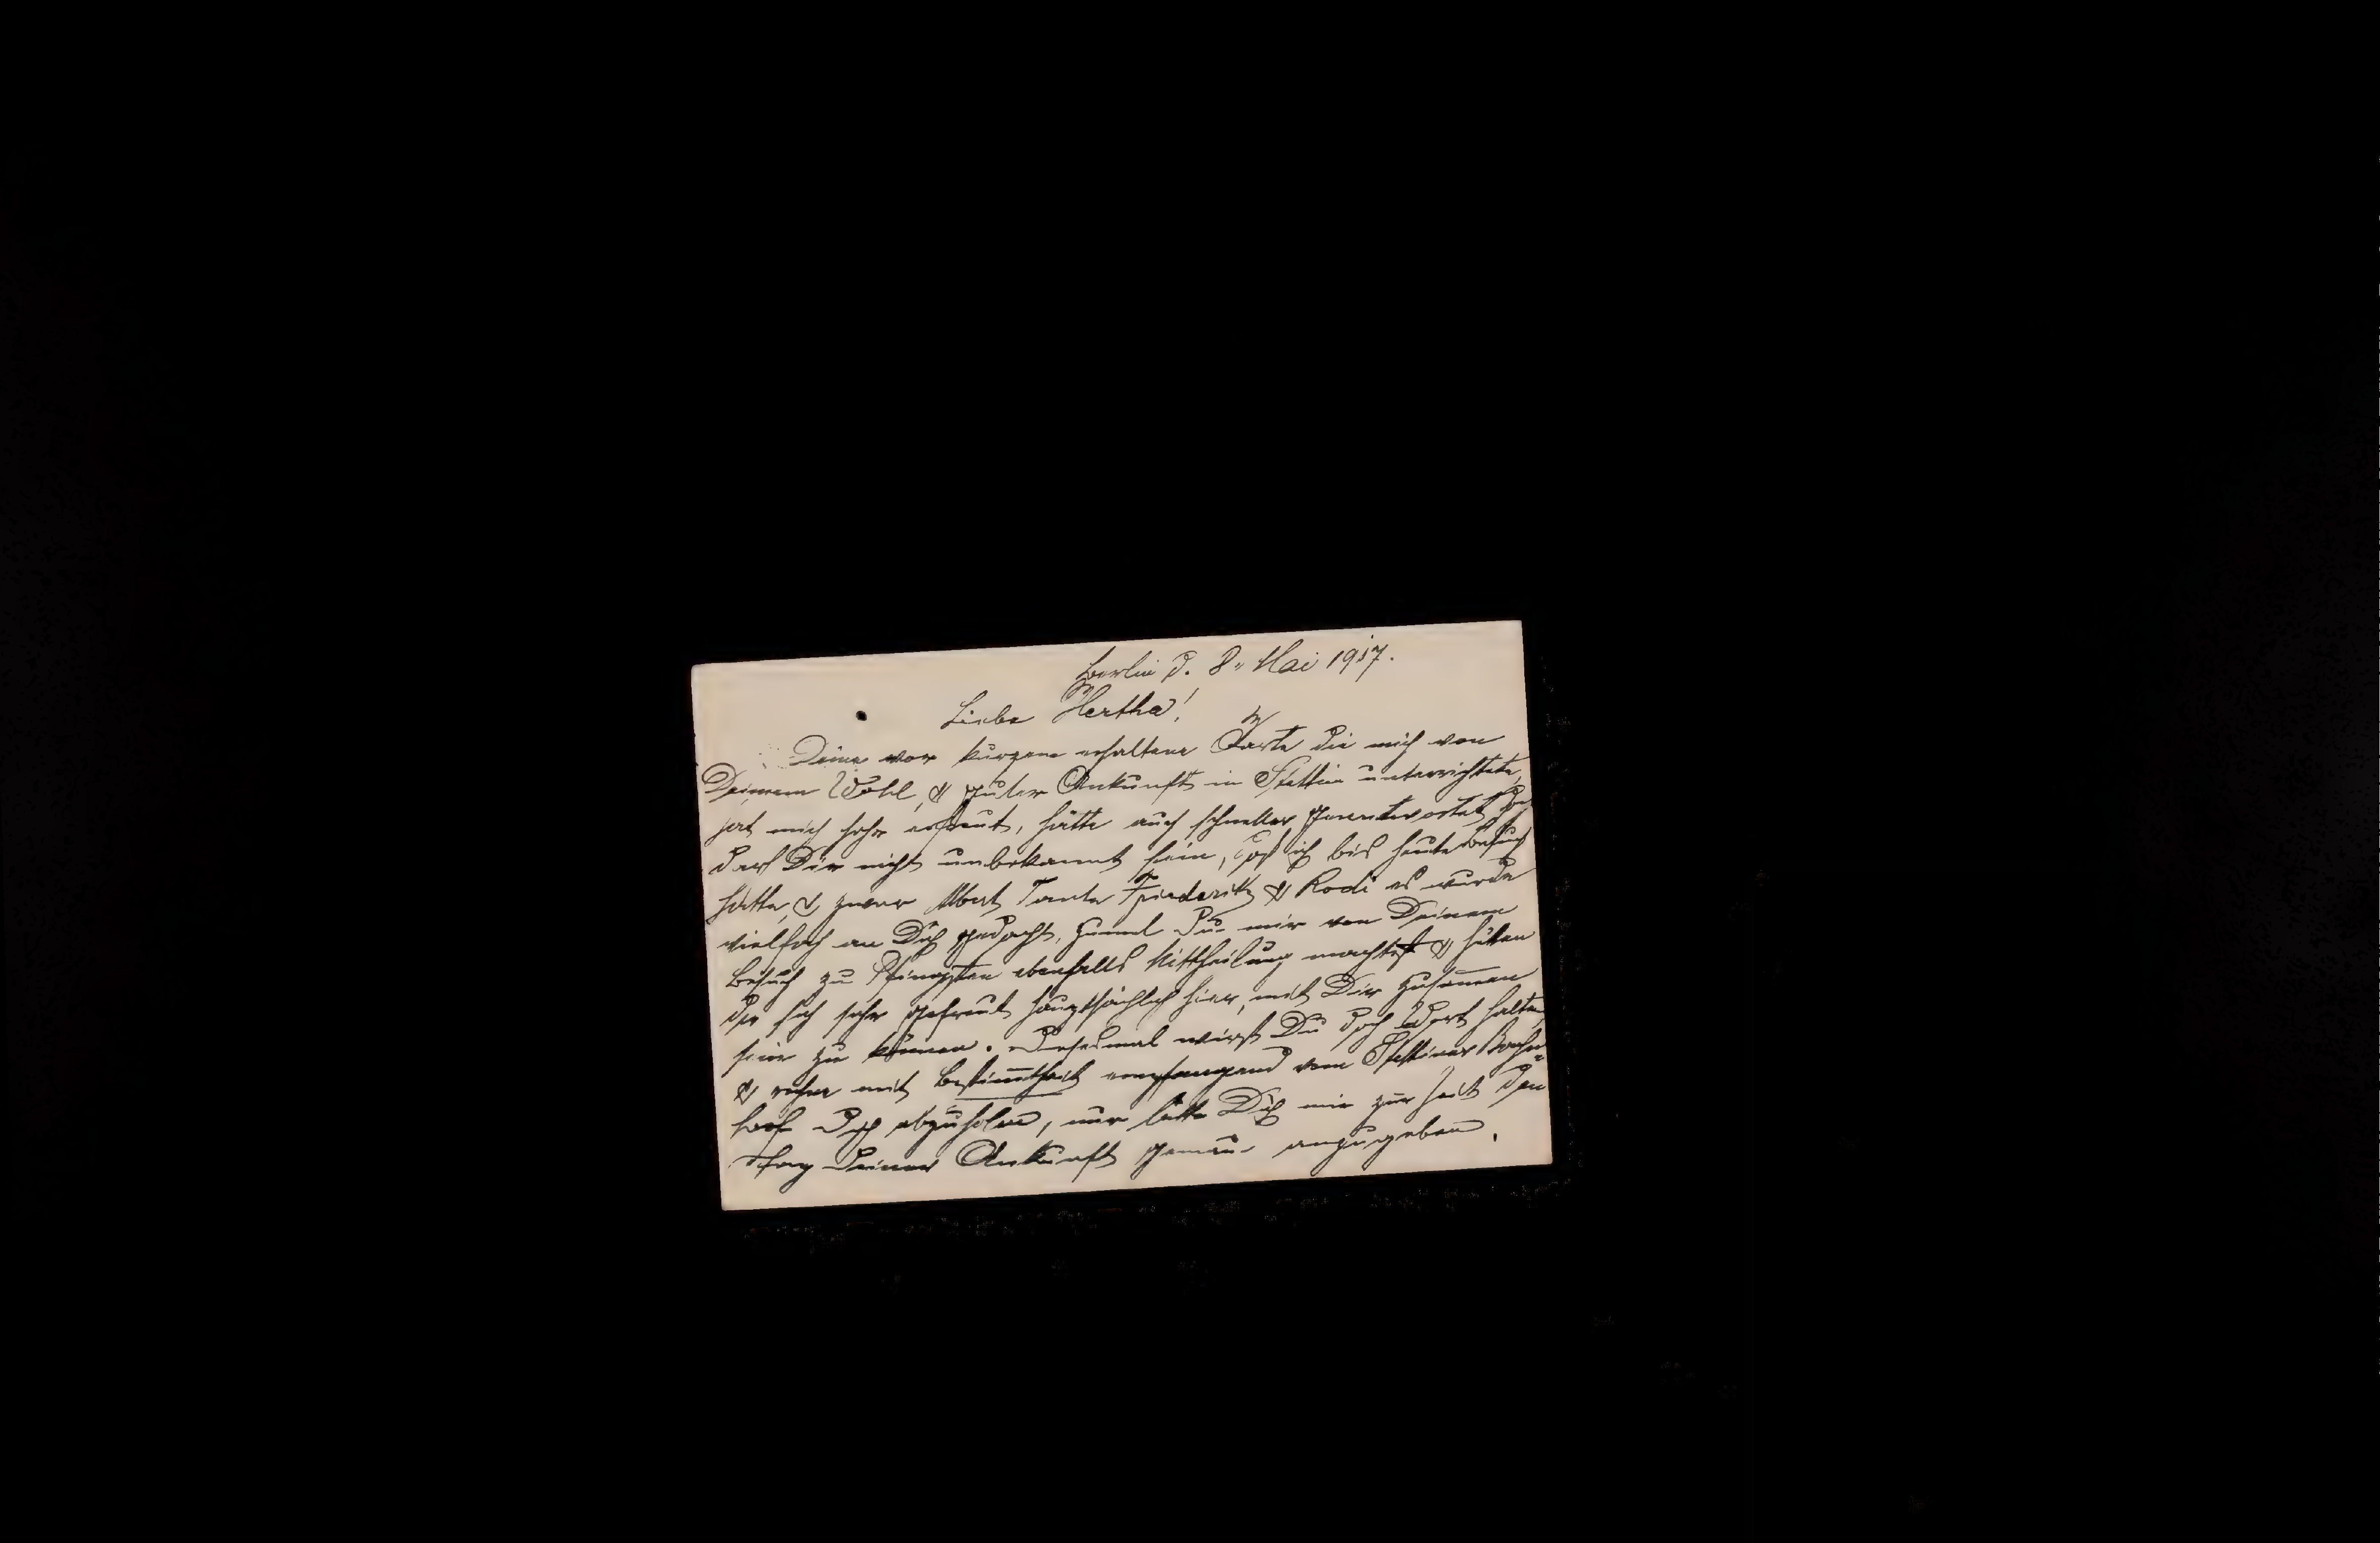 Berlin d. 8. Mai 1917.
Liebe Hertha!
Deine vor kurzem erhaltene Karte die mich von
Deinem Wohl, & guter Ankunft in Stettin unterrichtete,
hat mich sehr erfreut, hätte auch schneller geantwortet doch
darf Dir nicht unbekannt sein, daß ich bis heute Besuch
hatte, & zwar Tante & Rodi es wurde
vielfach an Dich gedacht, zumal Du mir von Deinem
Besuch zu Pfingsten ebenfalls Mittheilung machtest & hätten
die sich sehr gefreut hauptsächlich hier, mit Dir zusammen
sein zu können. Diesesmal wirst Du doch Wort halten
& rechne mit Bestimmtheit vom Stettiner Bahn=
hof Dich abzuholen, nur bitte Dich mir zur Zeit den
Tag Deiner Ankunft genau anzugeben.